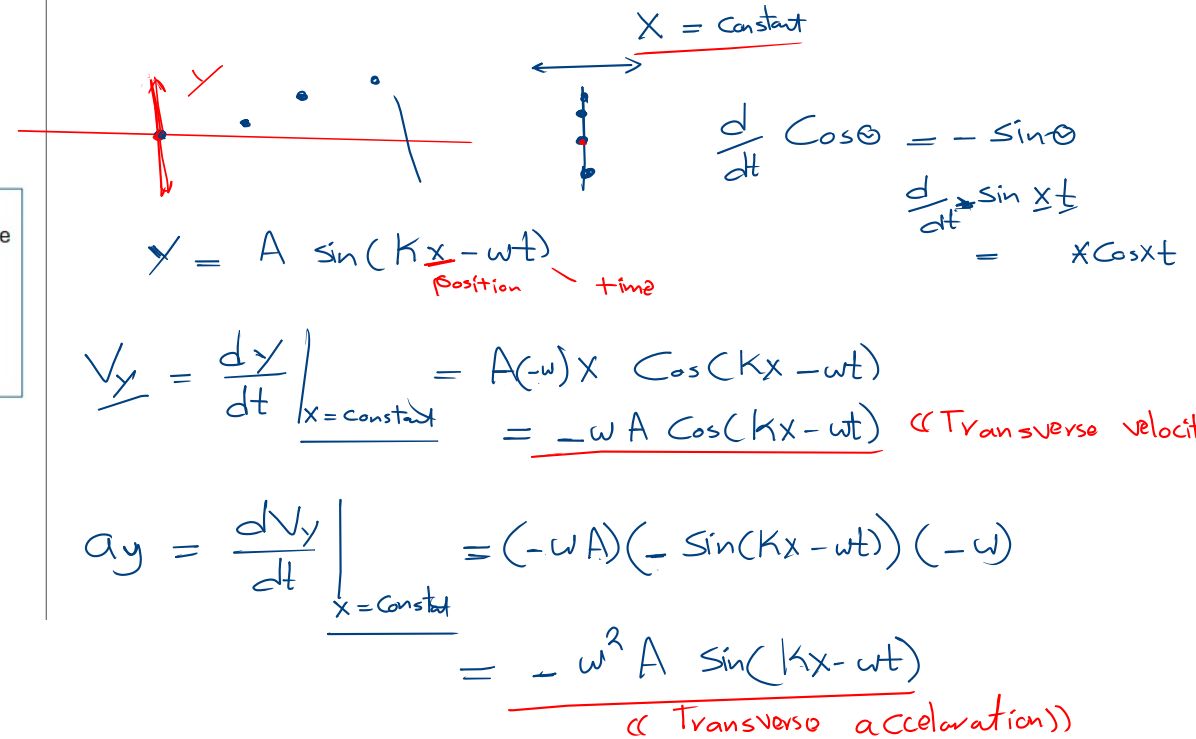 X = Constant
y
d/dt Cosθ = - sinθ
d/dt sin xt
= xCosxt
e
y = A sin(Kx - ωt)
position
time
Vy = dy/dt |x = constant = A(-ω) x Cos(Kx - ωt)
= -ω A Cos(Kx - ωt) ((Transverse velocit
ay = dVy/dt |x = Constat = (-ω A)(- Sin(Kx - ωt)) (-ω)
= - ω² A Sin(Kx - ωt)
(( Transverso accelaration))